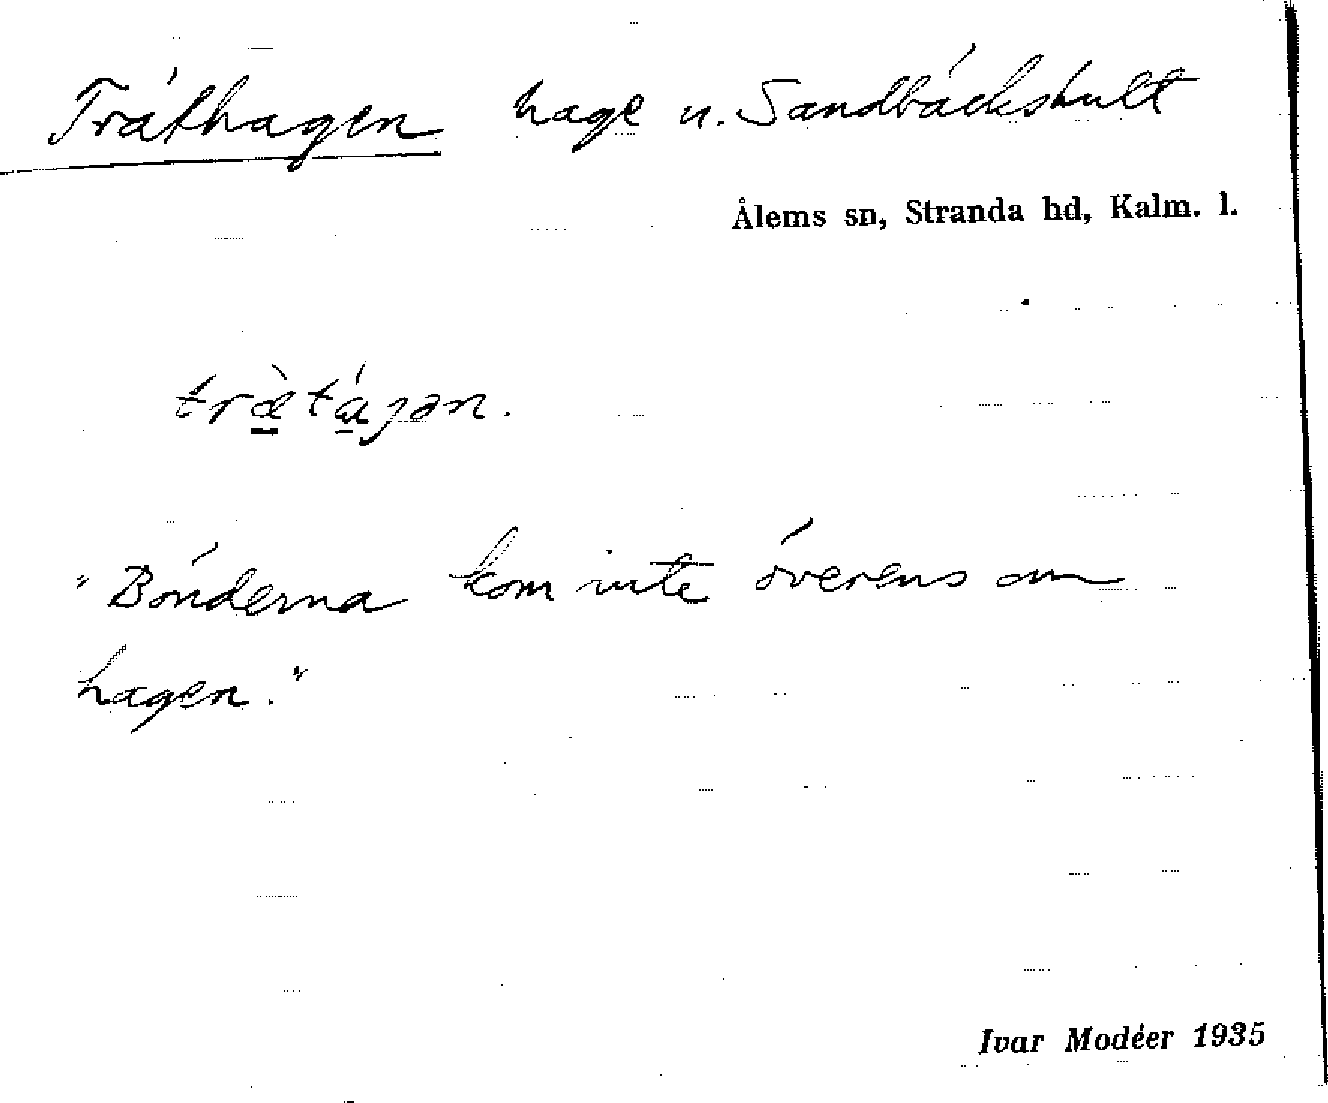 Träthagen hage u. Sandbäckshult
Ålems sn, Stranda hd, Kalm. l.
træ̀tágən.
"Bönderna kom inte överens om
hagen."
Ivar Modéer 1935